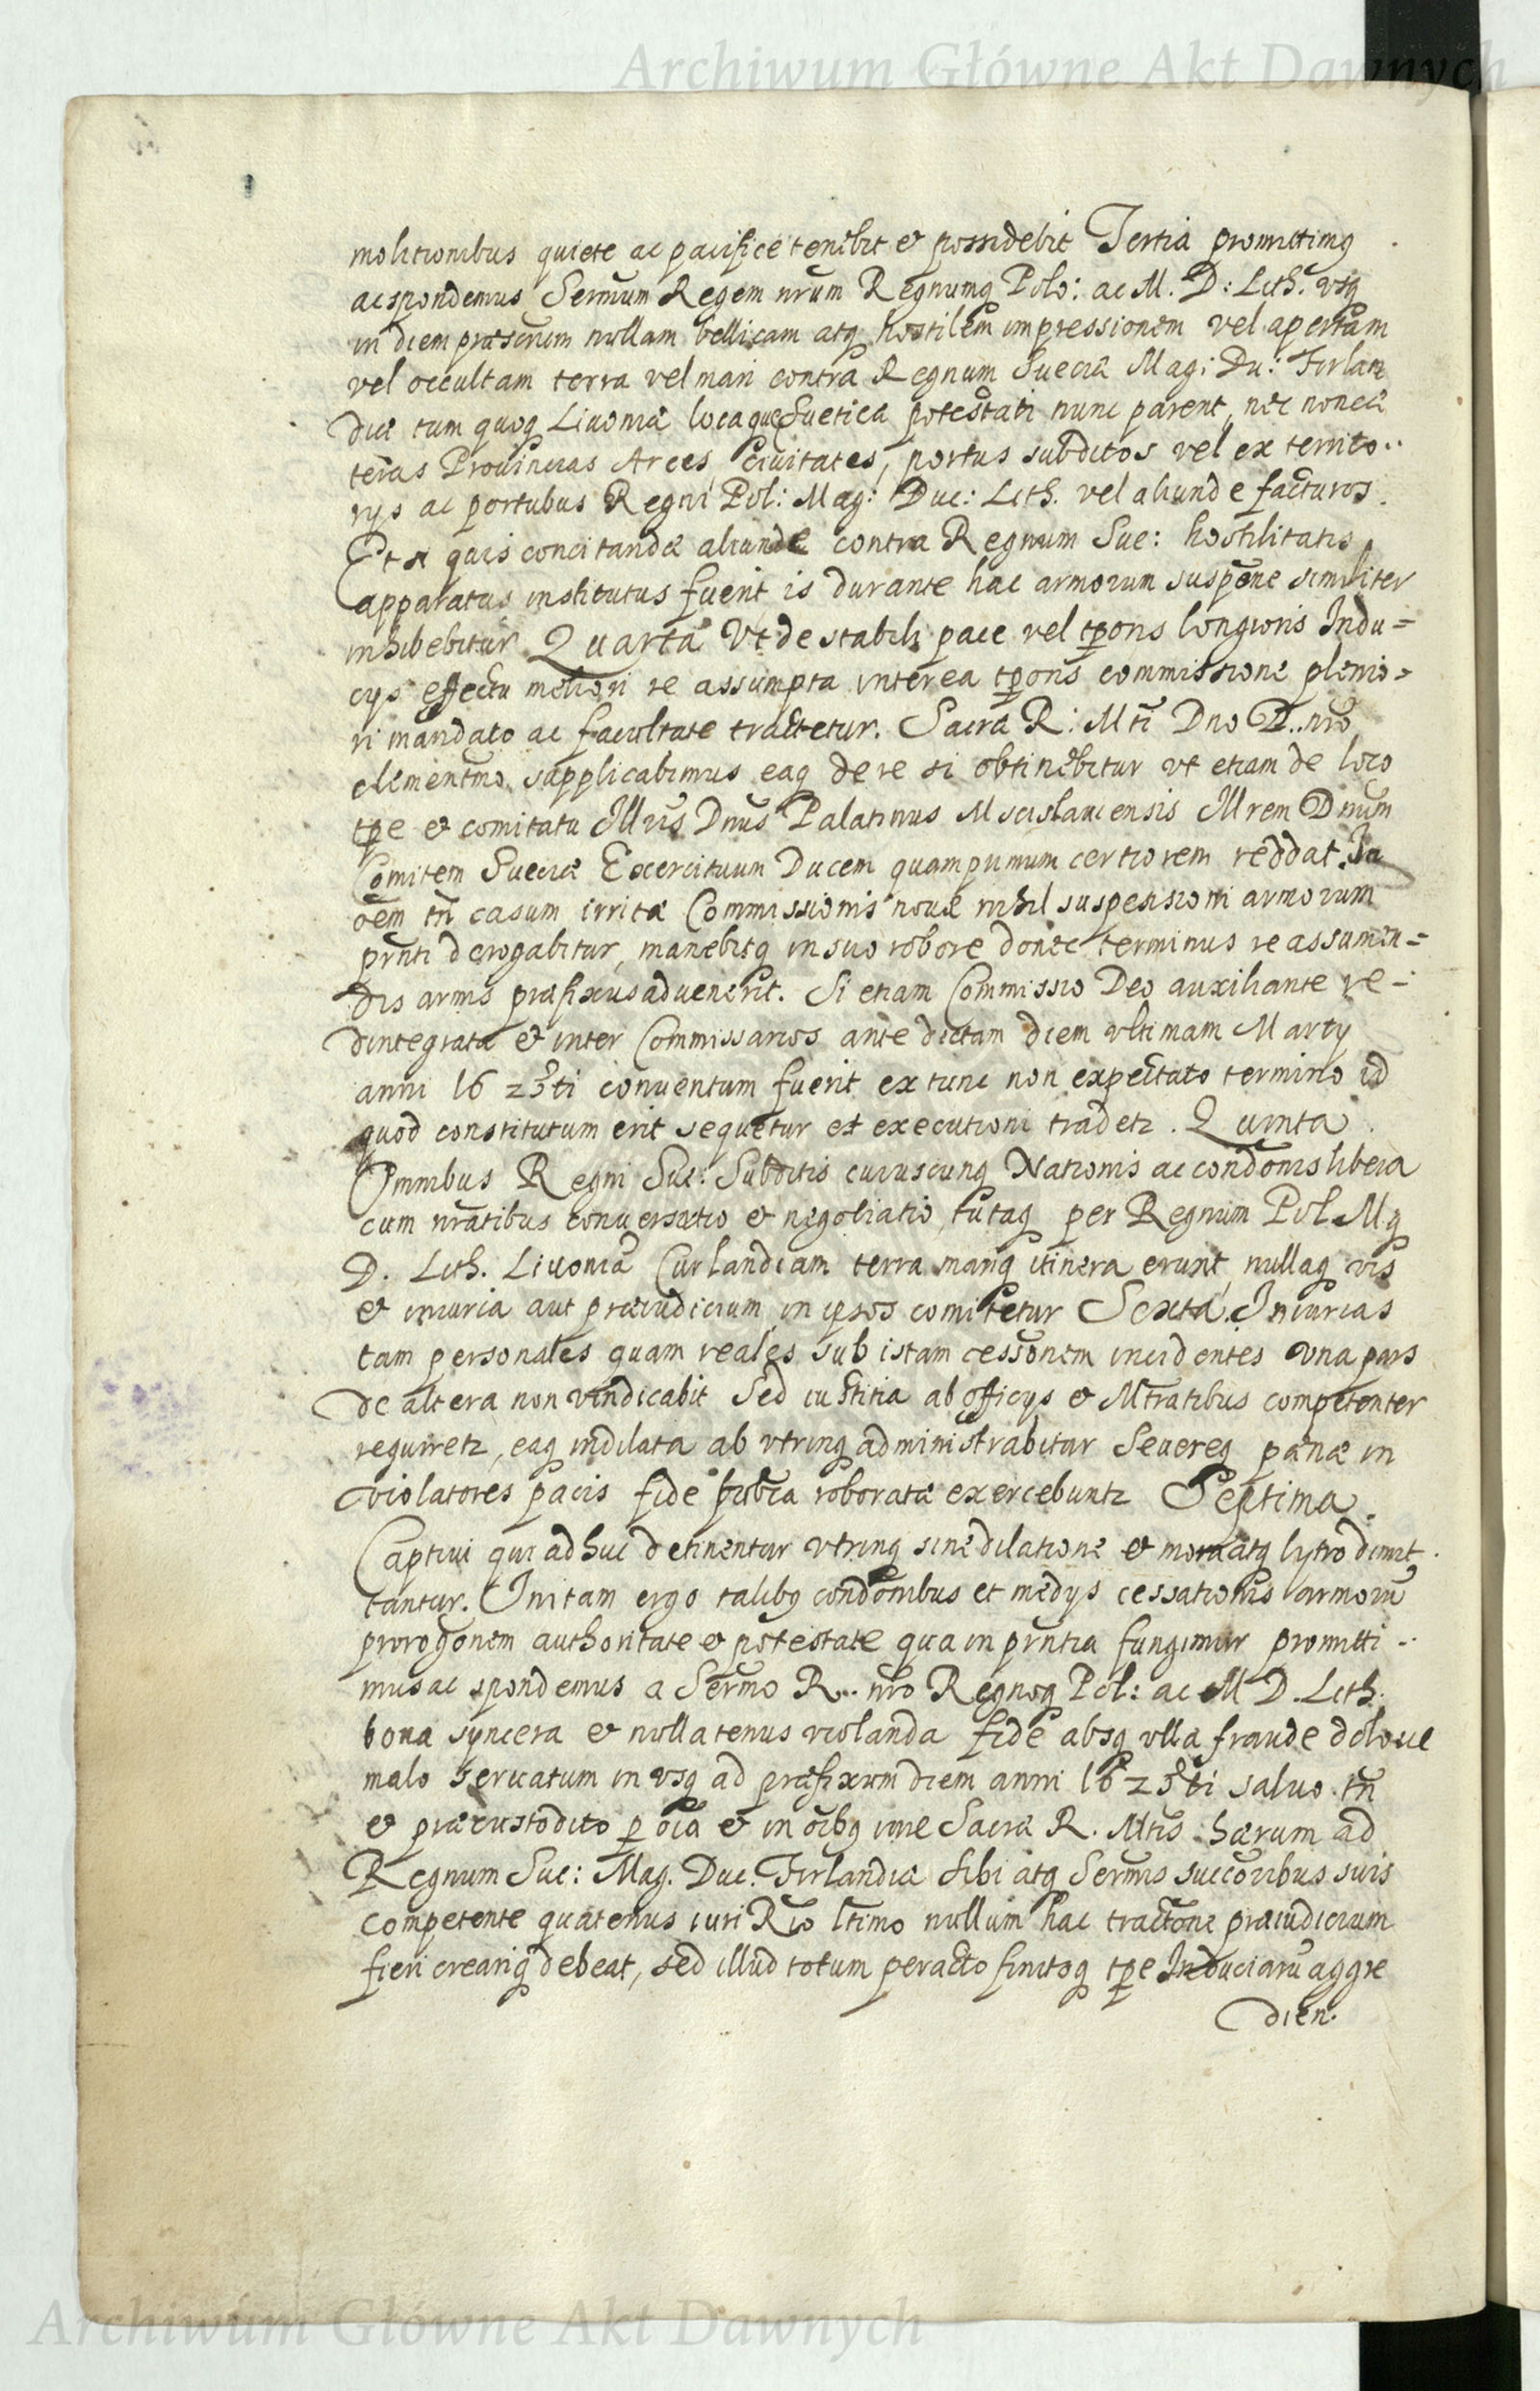 Archiwum Główne Akt Dawnych
molitionibus quiete ac pacifice tenebit et possidebit Tertia promittimꝫ
ac spondemus Sermum Regem nrum Regnumqꝫ Polo: ac M. D: Lith. vsqꝫ
in diem præscrum nullam bellicam atqꝫ hostilem impressionem vel apertam
vel occultam terra vel mari contra Regnum Sueciæ Mag: Du: Finlan
diæ tum quoqꝫ Liuoniæ loca quæ Sueticæ potestati nunc parent, nec non cæ
teras Prouincias Arces, ciuitates, portus subditos vel ex territo..
rys ac portubus Regni Pol: Mag: Duc: Lith. vel aliunde facturos.
Et si quis concitandæ aliunde contra Regnum Sue: hostilitatis
apparatus institutus fuerit is durante hac armorum suspēne similiter
inhibebitur. Quarta Vt de stabili pace vel tp̄oris longioris Indu=
cys effectu meliori re assumpta interea tp̄oris commissione plenio=
ri mandato ac facultate tractetur. Sacræ R: Mti Dno D.. nro
clementmo. supplicabimus eaqꝫ de re si obtinebitur vt etiam de loco
tp̄e et comitatu Illris Dnus Palatinus Mscislauiensis Illrem Dnum
Comitem Sueciæ Exercituum Ducem quamprimum certiorem reddat. In
oēm tn̄ casum irritæ Commissionis nouæ nihil suspensioni armorum
prnti derogabitur, manebitqꝫ in suo robore donec terminus reassumen=
dis armis præfixus aduenerit. Si etiam Commissio Deo auxiliante re-
dintegrata et inter Commissarios ante dictam diem vltimam Marty
anni 1625ti conuentum fuerit ex tunc non expectato termino id
quod constitutum erit sequetur et executioni tradetz. Quinta
Omnibus Regni Sue: Subditis cuiuscunqꝫ Nationis ac condonis libera
cum nratibus conuersatio et negotiatio, tutaqꝫ per Regnum Pol. Mg
D. Lith. Liuoniā Curlandiam terra mariqꝫ itinera erunt, nullaqꝫ vis
et iniuria aut præiudicium in ipsos comitetur Sexta. Iniurias
tam personales quam reales sub istam cessonem incidentes vna pars
de altera non vindicabit Sed iustitia ab officys et Mtratibus competenter
requiretz, eaqꝫ indilata ab vtrinqꝫ administrabitur Severeqꝫ pænæ in
violatores pacis fide publca roborata exercebuntz Septima.
Captiui qui adhuc detinentur vtrinqꝫ sine dilatione et mora atqꝫ lytro dimit
tantur. Initam ergo talibꝫ condonibus et medys cessationis armorū
prorogonem authoritate et potestate qua in prntia fungimur promitti..
mus ac spondemus a Sermo R.. nro Regnoqꝫ Pol: ac M D. Lith.
bona syncera et nullatenus violanda fide absqꝫ vlla fraude doloue
malo seruatum in vsqꝫ ad præfixum diem anni 1625ti saluo tn̄
et præcustodito p̱ oīa et in oībꝫ iure Sacræ R. Mtis hærum ad
Regnum Sue: Mag. Duc. Finlandiæ sibi atqꝫ Sermis succoribus suis
competente quatenus iuri Rio ltimo nullum hac tractone præiudicium
fieri creariqꝫ debeat, sed illud totum peracto finitoqꝫ tp̄e Induciarū aggre
dien.
Archiwum Główne Akt Dawnych